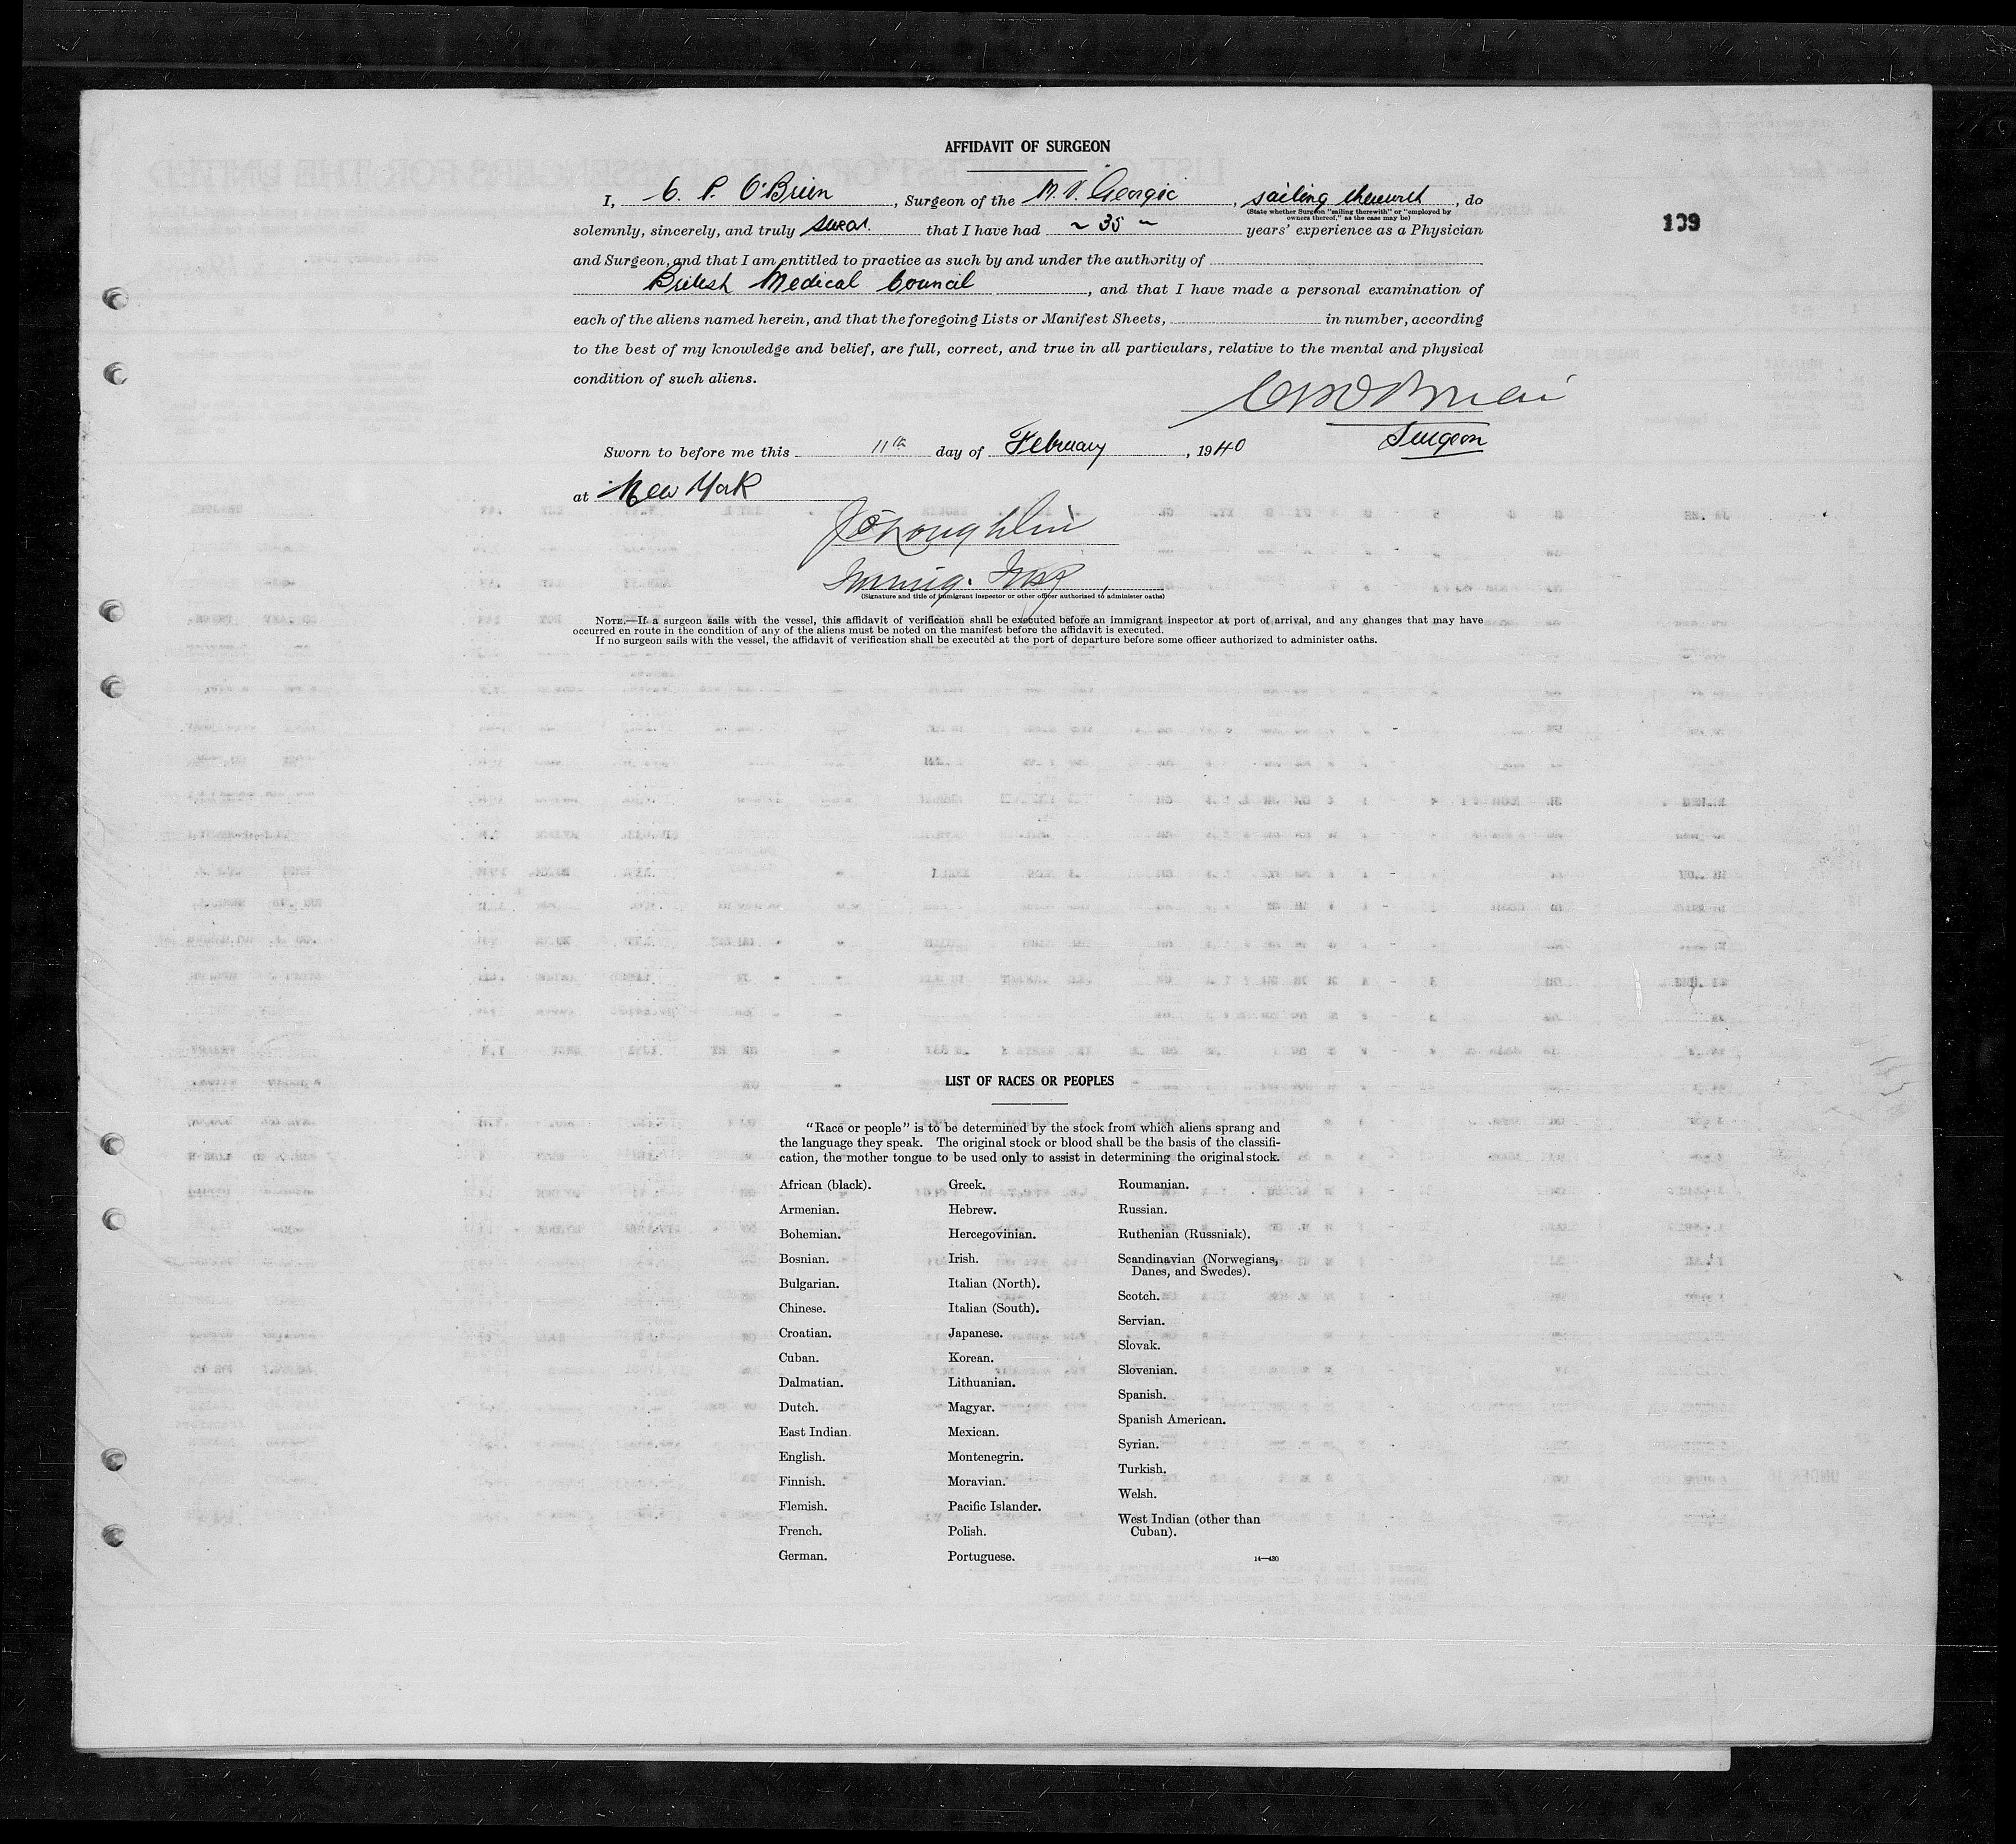 AFFIDAVIT OF SURGEON
I, C. P. O'Brien, Surgeon of the M.V. Georgic, sailing therewith, do
(State whether Surgeon "sailing therewith" or "employed by
owners thereof," as the case may be)
109
solemnly, sincerely, and truly swear. that I have had ~ 35 ~ years' experience as a Physician
and Surgeon, and that I am entitled to practice as such by and under the authority of
British Medical Council, and that I have made a personal examination of
each of the aliens named herein, and that the foregoing Lists or Manifest Sheets, in number, according
to the best of my knowledge and belief, are full, correct, and true in all particulars, relative to the mental and physical
condition of such aliens.
Surgeon
Sworn to before me this 11th day of February, 1940
at New York
Immig. Insp.
(Signature and title of immigrant inspector or other officer authorized to administer oaths)
NOTE.—If a surgeon sails with the vessel, this affidavit of verification shall be executed before an immigrant inspector at port of arrival, and any changes that may have
occurred en route in the condition of any of the aliens must be noted on the manifest before the affidavit is executed.
If no surgeon sails with the vessel, the affidavit of verification shall be executed at the port of departure before some officer authorized to administer oaths.
LIST OF RACES OR PEOPLES
"Race or people" is to be determined by the stock from which aliens sprang and
the language they speak. The original stock or blood shall be the basis of the classifi-
cation, the mother tongue to be used only to assist in determining the original stock.
African (black).
Armenian.
Bohemian.
Bosnian.
Bulgarian.
Chinese.
Croatian.
Cuban.
Dalmatian.
Dutch.
East Indian.
English.
Finnish.
Flemish.
French.
German.
Greek.
Hebrew.
Hercegovinian.
Irish.
Italian (North).
Italian (South).
Japanese.
Korean.
Lithuanian.
Magyar.
Mexican.
Montenegrin.
Moravian.
Pacific Islander.
Polish.
Portuguese.
Roumanian.
Russian.
Ruthenian (Russniak).
Scandinavian (Norwegians,
Danes, and Swedes).
Scotch.
Servian.
Slovak.
Slovenian.
Spanish.
Spanish American.
Syrian.
Turkish.
Welsh.
West Indian (other than
Cuban).
14—430